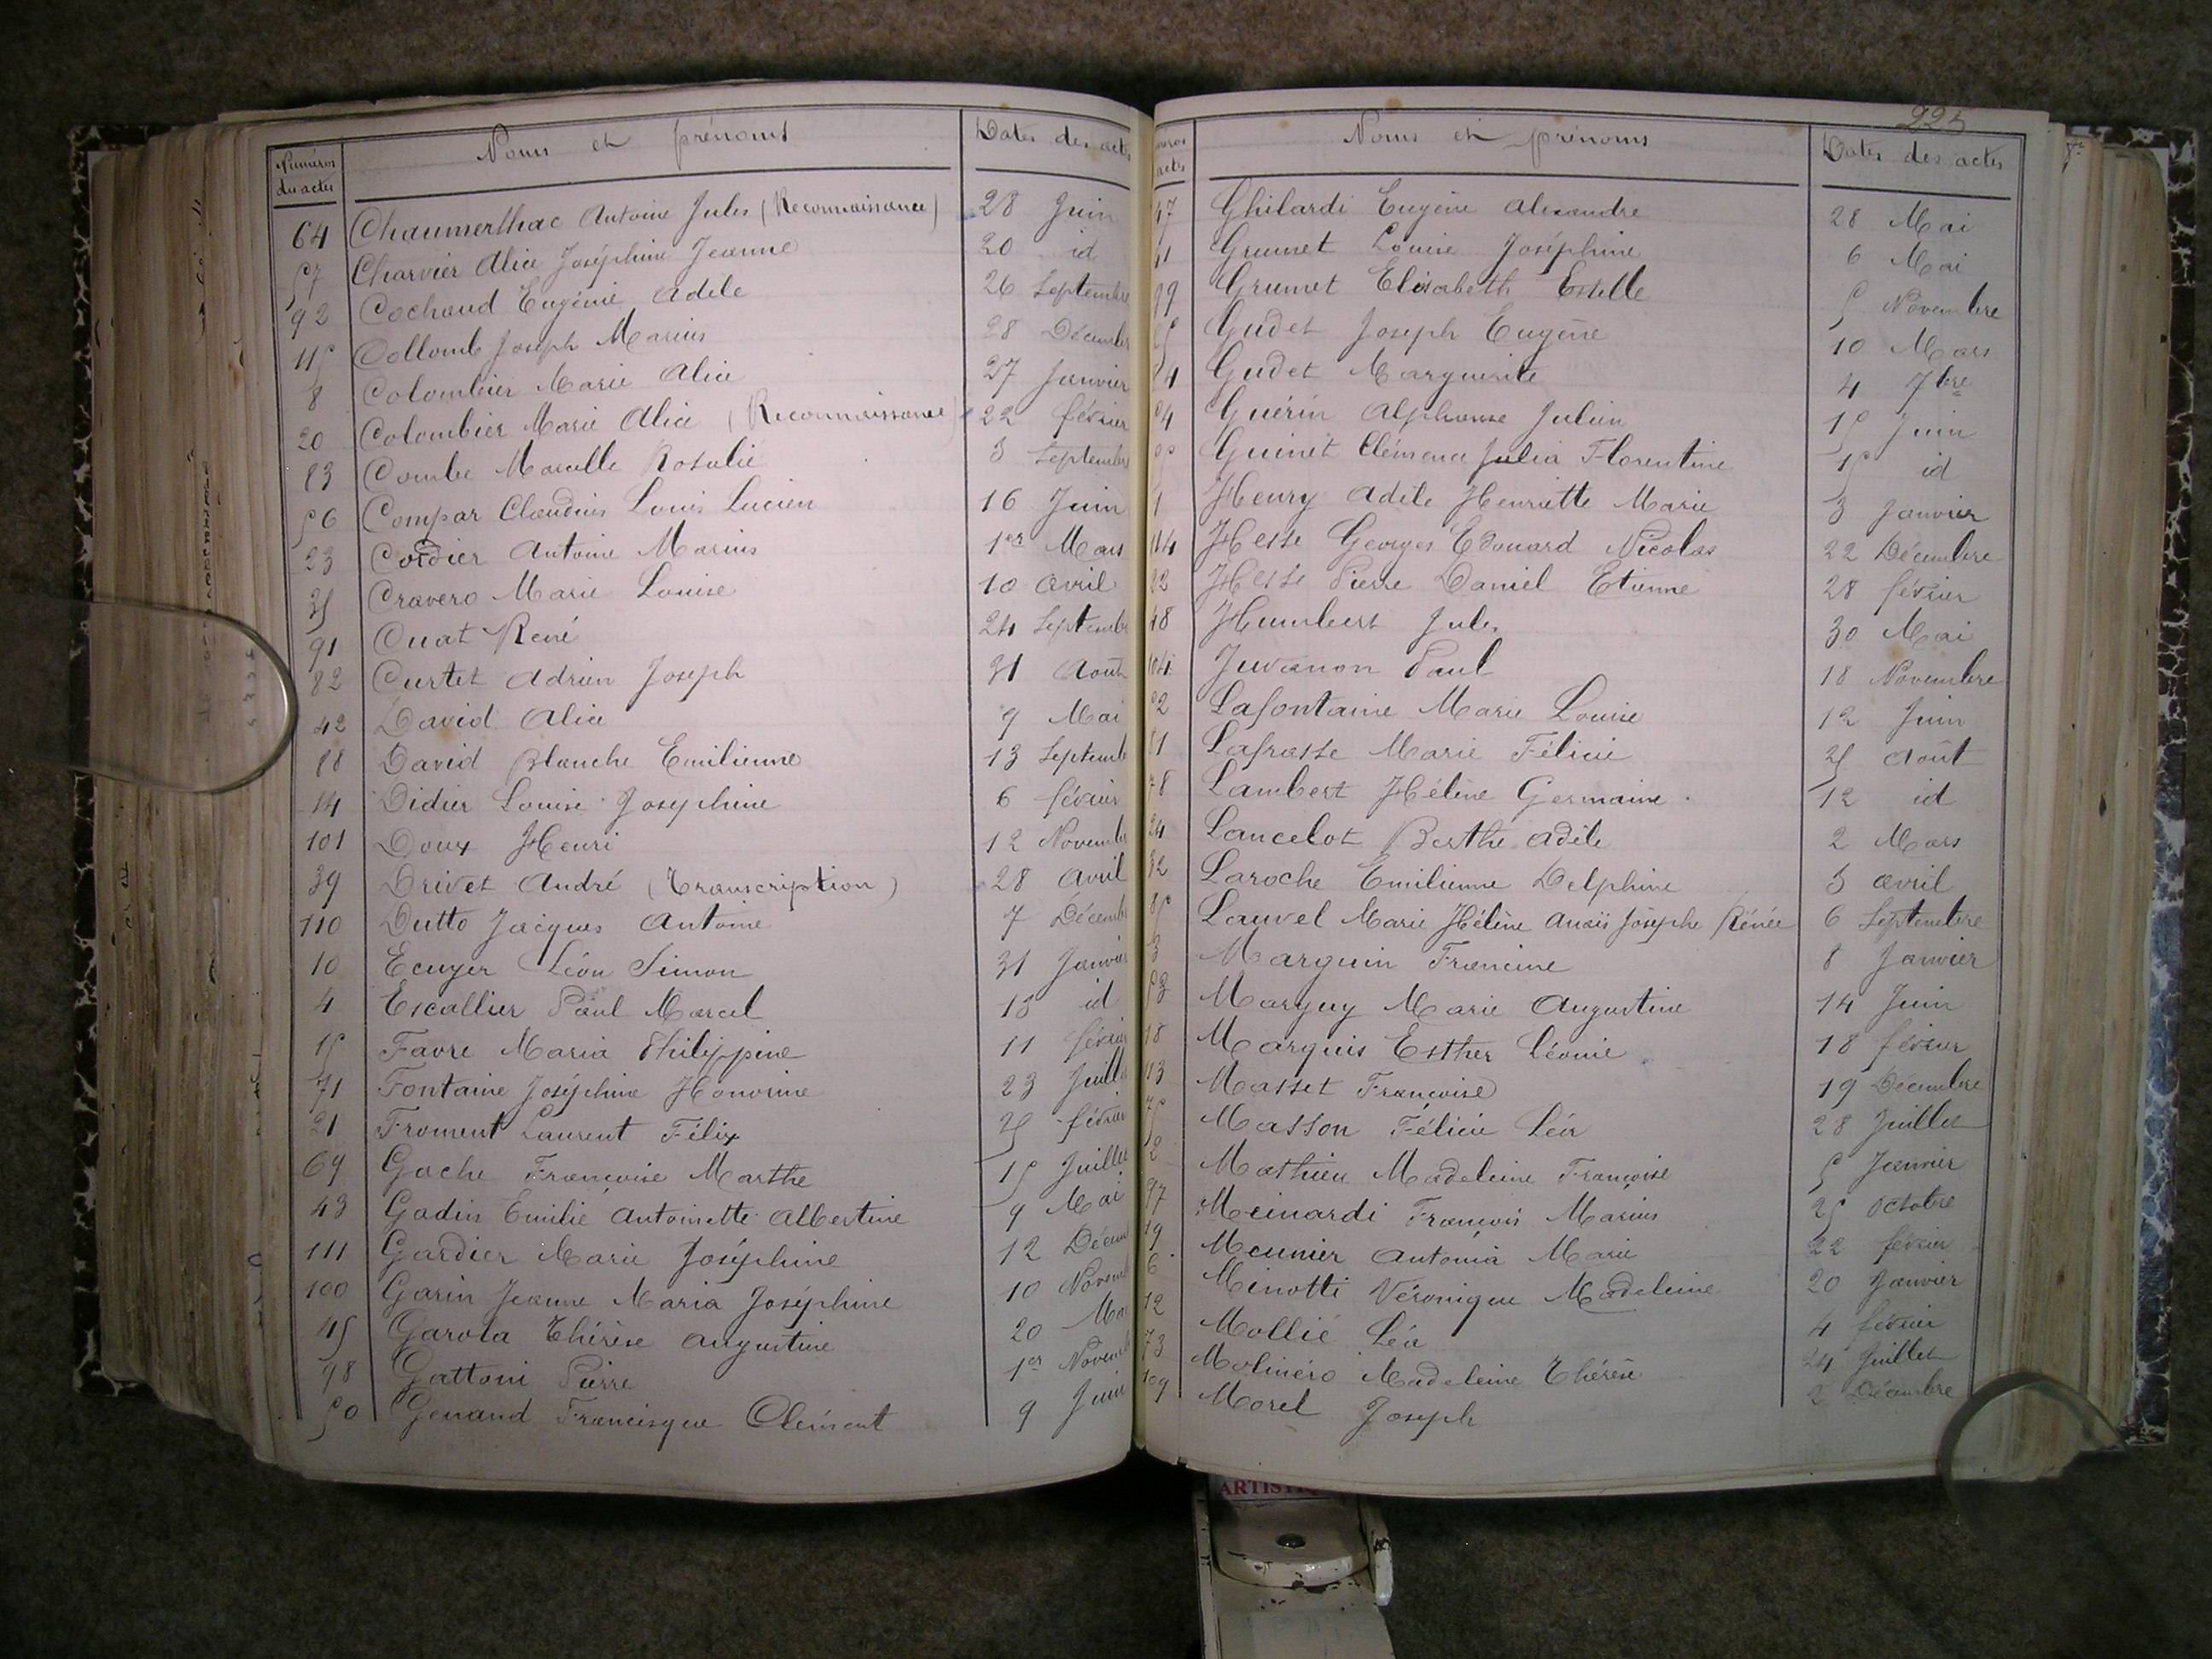 Numéros des actes Noms et prénoms Dates des actes
64 Chaumerthac Antoine Jules (Reconnaissance) 28 Juin
57 Charvier Alice Joséphine Jeanne 20 id
92 Cochaud Eugénie Adèle 26 Septembre
115 Collomb Joseph Marius 28 Décembre
8 Colombier Marie Alice 27 Janvier
20 Colombier Marie Alice (Reconnaissance) 22 février
83 Combe Marcelle Rosalie 3 Septembre
56 Compar Claudius Louis Lucien 16 Juin
23 Cordier Antoine Marius 1er Mars
35 Cravero Marie Louise 10 Avril
91 Cuat René 24 Septembre
82 Curtet Adrien Joseph 31 Août
42 David Alice 9 Mai
88 David Blanche Emilienne 13 Septemb
14 Didier Louise Joséphine 6 février
101 Doux Henri 12 Novembre
39 Drivet André (Transcription) 28 Avril
110 Dutto Jacques Antoine 7 Décemb
10 Ecuyer Léon Simon 31 Janvier
4 Escallier Paul Marcel 13 id
15 Favre Maria Philippine 11 février
71 Fontaine Joséphine Honorine 23 Juille
21 Froment Laurent Félix 25 février
69 Gache Françoise Marthe 15 Juillet
43 Gadin Emilie Antoinette Albertine 9 Mai
111 Gardier Marie Joséphine 12 Décem
100 Garin Jeanne Maria Joséphine 10 Novemb
45 Garola Thérèse Augustine 20 Mai
98 Gattoni Pierre 1er Novemb
50 Genand Francisque Clément 9 Juin
225
Noms et prénoms Dates des actes
47 Ghilardi Eugène Alexandre 28 Mai
41 Grumet Louise Joséphine 6 Mai
99 Grumet Elisabeth Estelle 5 Novembre
25 Gudet Joseph Eugène 10 Mars
84 Gudet Marguerite 4 7bre
54 Guérin Alphonse Julien 15 Juin
55 Guinet Clémence Julia Florentine 15 id
1 Henry Adèle Henriette Marie 3 Janvier
114 Hesse Georges Edouard Nicolas 22 Décembre
22 Hesse Pierre Daniel Etienne 28 février
48 Humbert Jules 30 Mai
104 Juvanon Paul 18 Novembre
52 Lafontaine Marie Louise 12 Juin
81 Lafrasse Marie Félicie 25 Août
78 Lambert Hélène Germaine 12 id
24 Lancelot Berthe Adèle 2 Mars
32 Laroche Emilienne Delphine 3 Avril
85 Lauvel Marie Hélène Anaïs Josèphe Rénée 6 Septembre
3 Marguin Francine 8 Janvier
53 Marguy Marie Augustine 14 Juin
18 Marquis Esther Léonie 18 février
113 Masset Françoise 19 Décembre
75 Masson Félicie Léa 28 Juillet
2 Mathieu Madeleine Françoise 5 Janvier
97 Meinardi François Marius 25 Octobre
19 Meunier Antonia Marie 22 février
6 Minotti Véronique Madeleine 20 Janvier
12 Mollié Léa 4 février
73 Molinéro Madeleine Thérèse 24 Juillet
109 Morel Joseph 2 Décembre